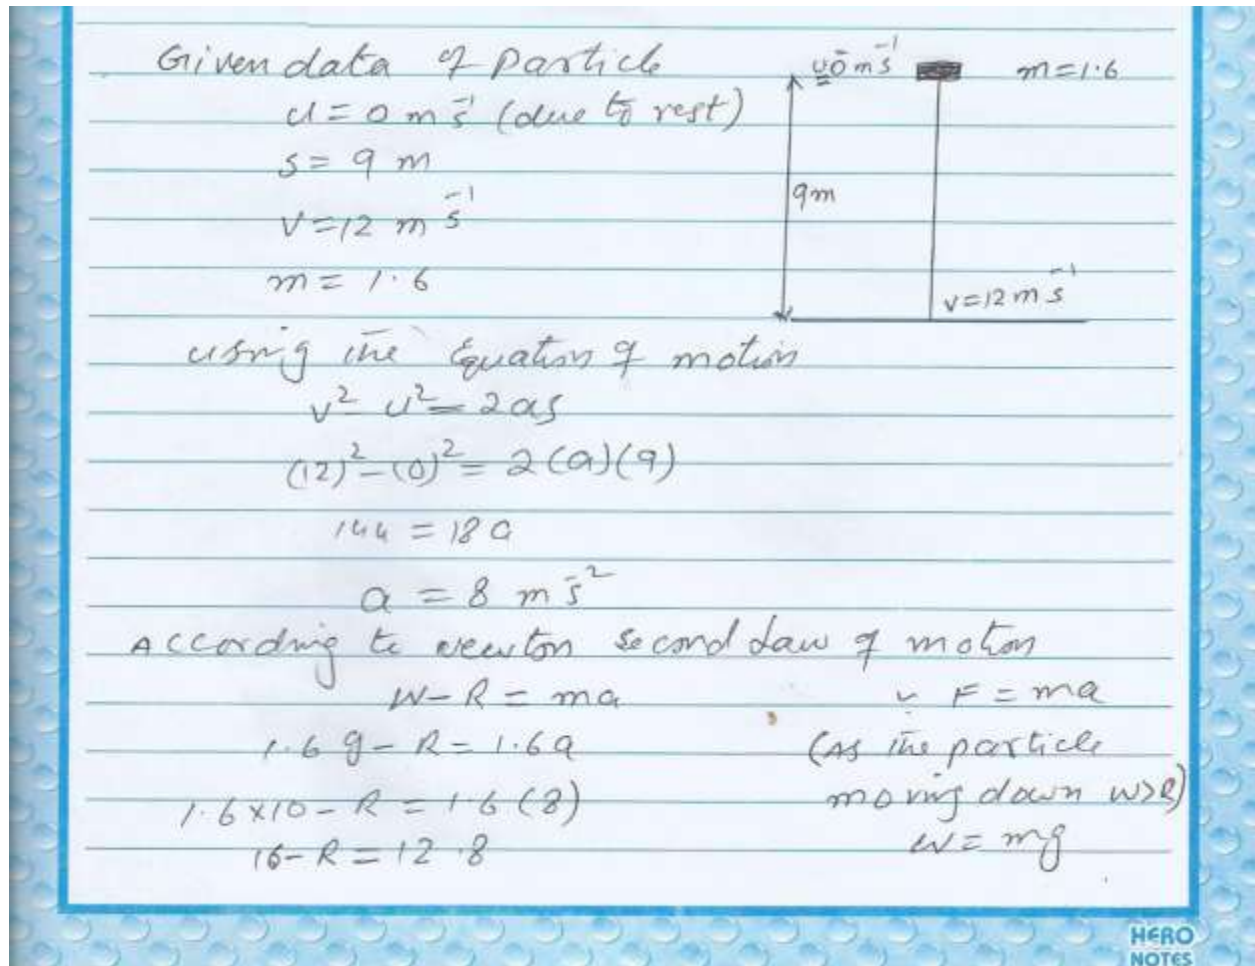 Given data of Particle
u = 0 m s⁻¹ (due to rest)
s = 9 m
v = 12 m s⁻¹
m = 1.6
u=0 m s⁻¹
m = 1.6
9m
v=12 m s⁻¹
using the Equation of motion
v² - u² = 2as
(12)² - (0)² = 2(a)(9)
144 = 18a
a = 8 m s⁻²
According to Newton second Law of motion
W - R = ma
∵ F = ma
1.6 g - R = 1.6a
(As the particle
1.6 x 10 - R = 1.6 (8)
moving down W>R)
16 - R = 12.8
W = mg
HERO
NOTES